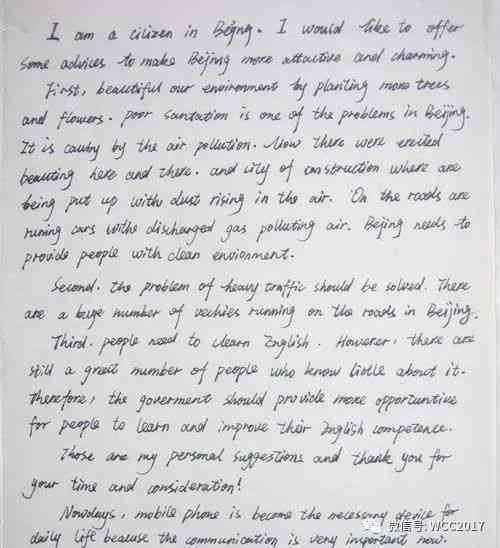 I am a citizen in Bejng. I would like to offer
some advices to make Beijing more attractive and charming.
First, beautiful our environment by planting more trees
and flowers. poor santation is one of the problems in Beijing.
It is cauby by the air pollution. Now there were erected
beauting here and there. and city of construction where are
being put up with dust rising in the air. On the roads are
runing cars withe discharged gas polluting air. Bejing needs to
provide people with clean enviorment.
Second. the problem of heavy traffic should be solved. There
are a huge number of vechies running on the roads in Beijing.
Third. people need to learn English. However, there are
still a great number of people who know liotle about it.
Therefore, the goverment should provide more opportuntive
for people to learn and improve their English competence.
Those are my personal suggestions and thank you for
your time and consideration!
Nowdays, mobile phone is become the necessny device for
daily life because the communication is very important now.
微信号: WCC2017